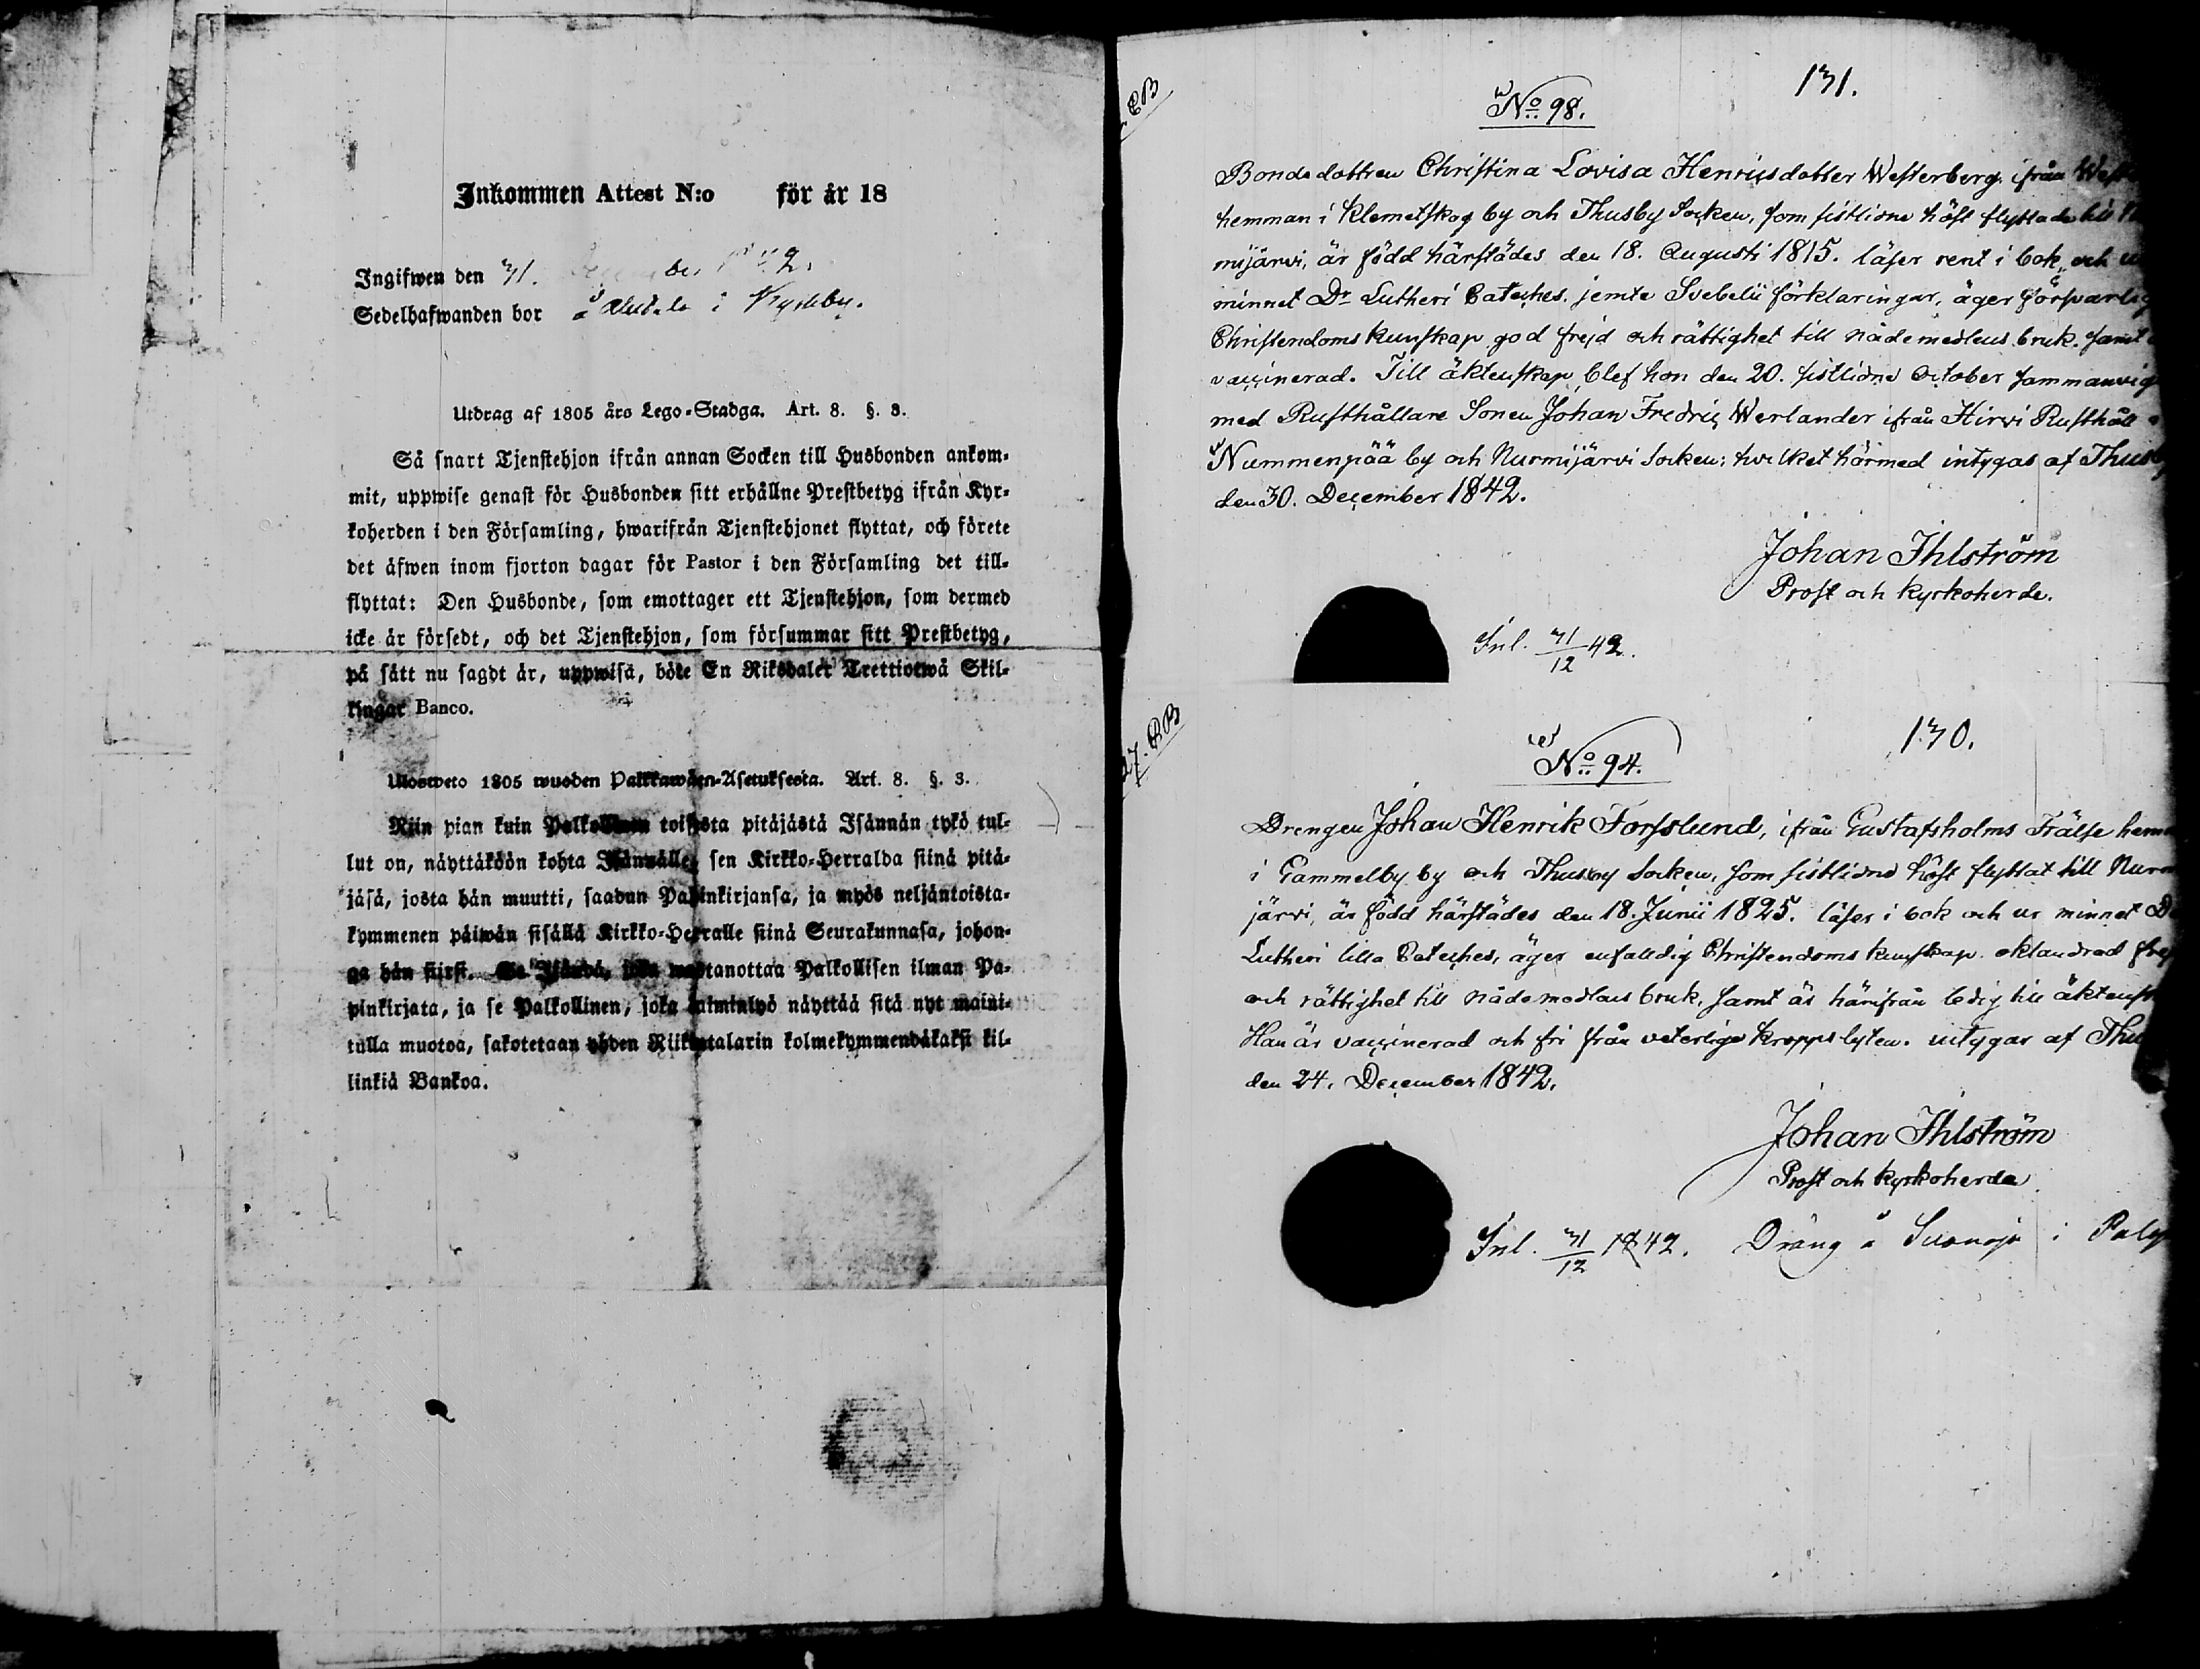 Inkommen Attest N:o för år 18
Ingifwen den 31. December 1842.
Sedelhafwanden bor å i Kyrkby.
Utdrag af 1805 års Lego-Stadga. Art. 8. §. 3.
Så snart Tjenstehjon ifrån annan Socken till Husbonden ankom-
mit, uppwise genast för Husbonden sitt erhållne Prestbetyg ifrån Kyr-
koherden i den Församling, hwarifrån Tjenstehjonet flyttat, och förete
det äfwen inom fjorton dagar för Pastor i den Församling det till-
flyttat: Den Husbonde, som emottager ett Tjenstehjon, som dermed
icke är försedt, och det Tjenstehjon, som försummar sitt Prestbetyg,
på sätt nu sagdt är, uppwisa, böte En Riksdaler Trettiotwå Skil-
lingar Banco.
Ulosweto 1805 wuoden Palkkawäen-Asetuksesta. Art. 8. §. 3.
Niin pian kuin Palkollinen toisesta pitäjästä Isännän tykö tul-
lut on, näyttäköön kohta Isännälle, sen Kirkko-Herralda siinä pitä-
jäsä, josta hän muutti, saadun Papinkirjansa, ja myös neljäntoista-
kymmenen päiwän sisällä Kirkko-Herralle siinä Seurakunnasa, johon-
ga hän siirsi. Se Isändä, joka wastanottaa Palkollisen ilman Pa-
pinkirjata, ja se Palkollinen, joka laiminlyö näyttää sitä nyt maini-
tulla muotoa, sakotetaan yhden Riikintalarin kolmekymmendäkaksi kil-
linkiä Bankoa.
CB
No 98. 131.
Bondedottren Christina Lovisa Henricsdotter Westerberg ifrån
hemman i Klemetskog by och Thusby Socken, som sistlidne höst flyttade till
mijärvi, är född härstädes den 18. Augusti 1815. läser rent i bok, och
minnet Dr Lutheri Cateches. jemte Svebelii förklaringar, äger försvarlig
Christendoms kunskap god frejd och rättighet till nådemedlens bruk. samt
vaccinerad. Till äktenskap blef hon den 20. sistlidne October sammanvigd
med Rusthållare Sonen Johan Fredric Werlander ifrån Hirvi Rusthåll
Nummenpää by och Nurmijärvi Socken; hvilket härmed intygas af Thusby
den 30. December 1842.
Johan Ihlström
Prost och Kyrkoherde.
Inl. 31/12 42.
27. CB
No 94. 130.
Drengen Johan Henrik Forsslund, ifrån Gustafsholms Frälse hem
i Gammelby by och Thusby Socken, som sistlidne höst flyttat till Nurm
järvi, är född härstädes den 18. Junii 1825. läser i bok och ur minnet D
Lutheri lilla Cateches, äger enfalldig Christendoms kunskap. oklandrad frej
och rättighet till nådemedlens bruk, samt är härifrån ledig till äktensk
Han är vaccinerad och fri från veterlige kroppslyten. intygar af Thu
den 24. December 1842.
Johan Ihlström
Prost och Kyrkoherde
Inl. 31/12 1842. Dräng å i